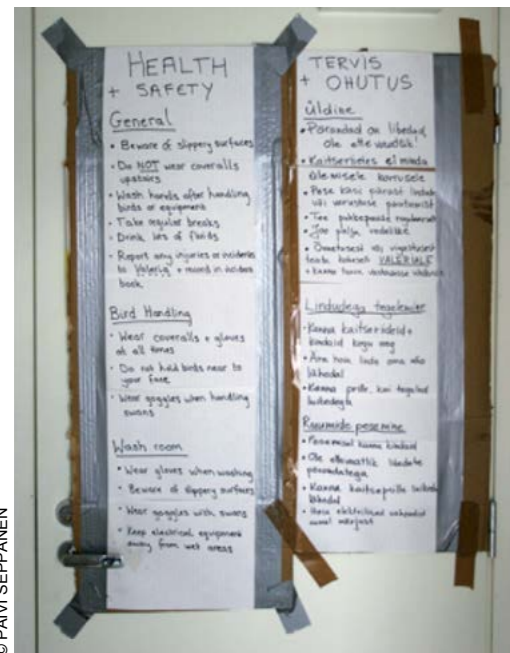 HEALTH
+ SAFETY
General
• Beware of slippery surfaces
• Do NOT wear coveralls
upstairs
• Wash hands after handling
birds or equipment
• Take regular breaks
• Drink lots of fluids
• Report any injuries or incidents
to Valeria + record in incident
book.
Bird Handling
• Wear coveralls + gloves
at all times
• Do not hold birds near to
your face
• Wear goggles when handling
swans
Wash room
• Wear gloves when washing
• Beware of slippery surfaces
• Wear goggles with swans
• Keep electrical equipment
away from wet areas
TERVIS
+ OHUTUS
Üldine
• Põrandad on libedad,
ole ettevaatlik!
• Kaitseriietes ei minda
ülemisele korrusele
• Pese käsi pärast lindude
või varustuse puutumist
• Tee puhkepause regulaarselt
• Joo palju vedelikke
• õnnetusest või vigastusest
teata koheselt VALERIALE
+ kanna
Lindudega tegelemine
• Kanna kaitseriideid +
kindaid kogu aeg
• Ära hoia lindu oma näo
lähedal
• Kanna prille, kui tegeled
luikedega
Ruumide pesemine
• Pesemisel kanna kindaid
• Ole ettevaatlik libedate
põrandatega
• Kanna kaitseprille luikede
lähedal
• Hoia elektrilised
eemal märjast
© PÄIVI SEPPÄNEN